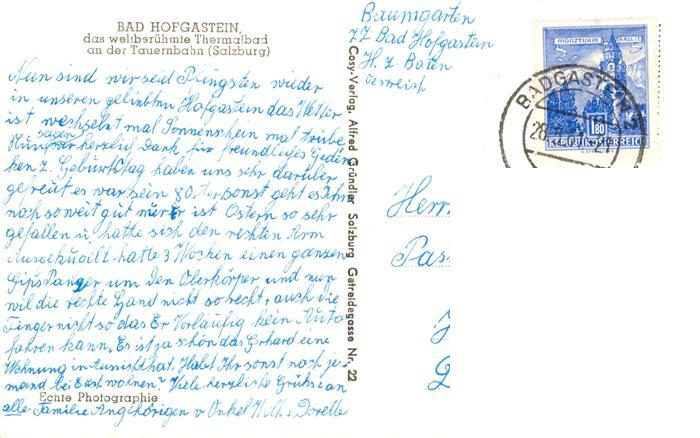 BAD HOFGASTEIN,
das weltberühmte Thermalbad
an der Tauernbahn (Salzburg)
Nun sind wir seit Pfingsten wieder
in unseren geliebten Hofgastein das Wetter
ist wechselnt mal Sonnenschein mal trübe
Nun sagen wir herzlich Dank für freundliches Geden
ken z. Geburtstag haben uns sehr darüber
gefreut es war sein 80. ter sonst geht es Ihm
noch soweit gut nur Er ist Ostern so sehr
gefallen u. hatte sich den rechten Arm
Ausgekugelt hatte 3 Wochen einen ganzen
Gips Panzer um den Oberkörper und nun
wil die rechte Hand nicht so recht, auch die
Finger nicht so das Er Vorläufig kein Auto
fahren kann. Es ist ja schön das Gerhard eine
Wohnung in hat. Habt Ihr sonst noch je-
mand bei Euch wohnen? Viele herzliche Grüße an
alle Familie Angehörigen v Onkel Dorette
Echte Photographie
Cosy-Verlag, Alfred Gründler Salzburg Getreidegasse Nr. 22
Baumgarten
ZZ Bad Hofgastein
H. z Boten
Oesterreich
MÜNZTURM HALL
1.80
REPUBLIK ÖSTERREICH
BADGASTEIN 2
28.
Herr.
Pas